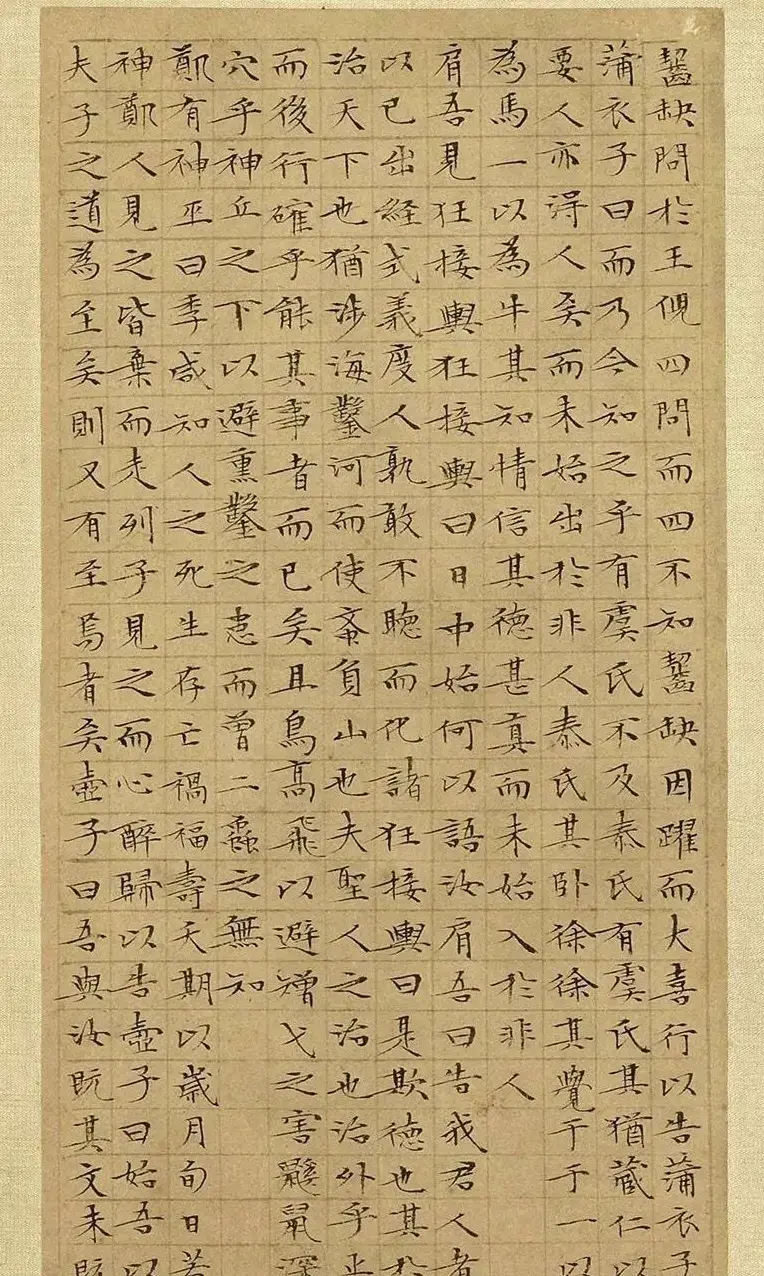 齧缺問於王倪四問而四不知齧缺因躍而大喜行以告蒲衣子
蒲衣子曰而乃今知之乎有虞氏不及泰氏有虞氏其猶藏仁以
要人亦得人矣而未始出於非人泰氏其臥徐徐其覺于于一以
為馬一以為牛其知情信其德甚真而未始入於非人
肩吾見狂接輿狂接輿曰日中始何以語汝肩吾曰告我君人者
以己出經式義度人孰敢不聽而化諸狂接輿曰是欺德也其於
治天下也猶涉海鑿河而使蚉負山也夫聖人之治也治外乎正
而後行確乎能其事者而已矣且鳥高飛以避矰弋之害鼷鼠深
穴乎神丘之下以避熏鑿之患而曾二蟲之無知
鄭有神巫曰季咸知人之死生存亡禍福壽夭期以歲月旬日若
神鄭人見之皆棄而走列子見之而心醉歸以告壺子曰始吾以
夫子之道為至矣則又有至焉者矣壺子曰吾與汝既其文未既